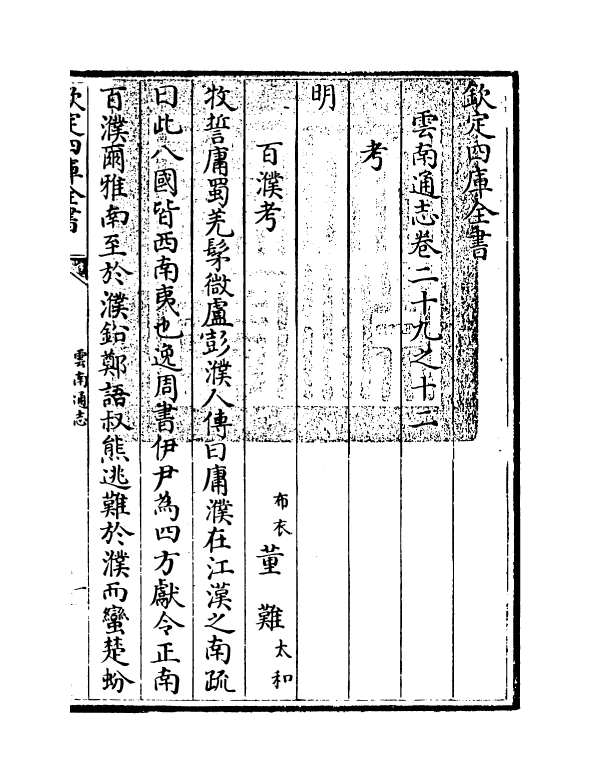 欽定四庫全書
雲南通志卷二十九之十二
考
明
百濮考 布衣董難太和
牧誓庸蜀羌髳微盧彭濮人傳曰庸濮在江漢之南疏
曰此八國皆西南夷也逸周書伊尹為四方獻令正南
百濮爾雅南至於濮鉛鄭語叔熊逃難於濮而蠻楚蚡
欽定四庫全書
雲南通志
一